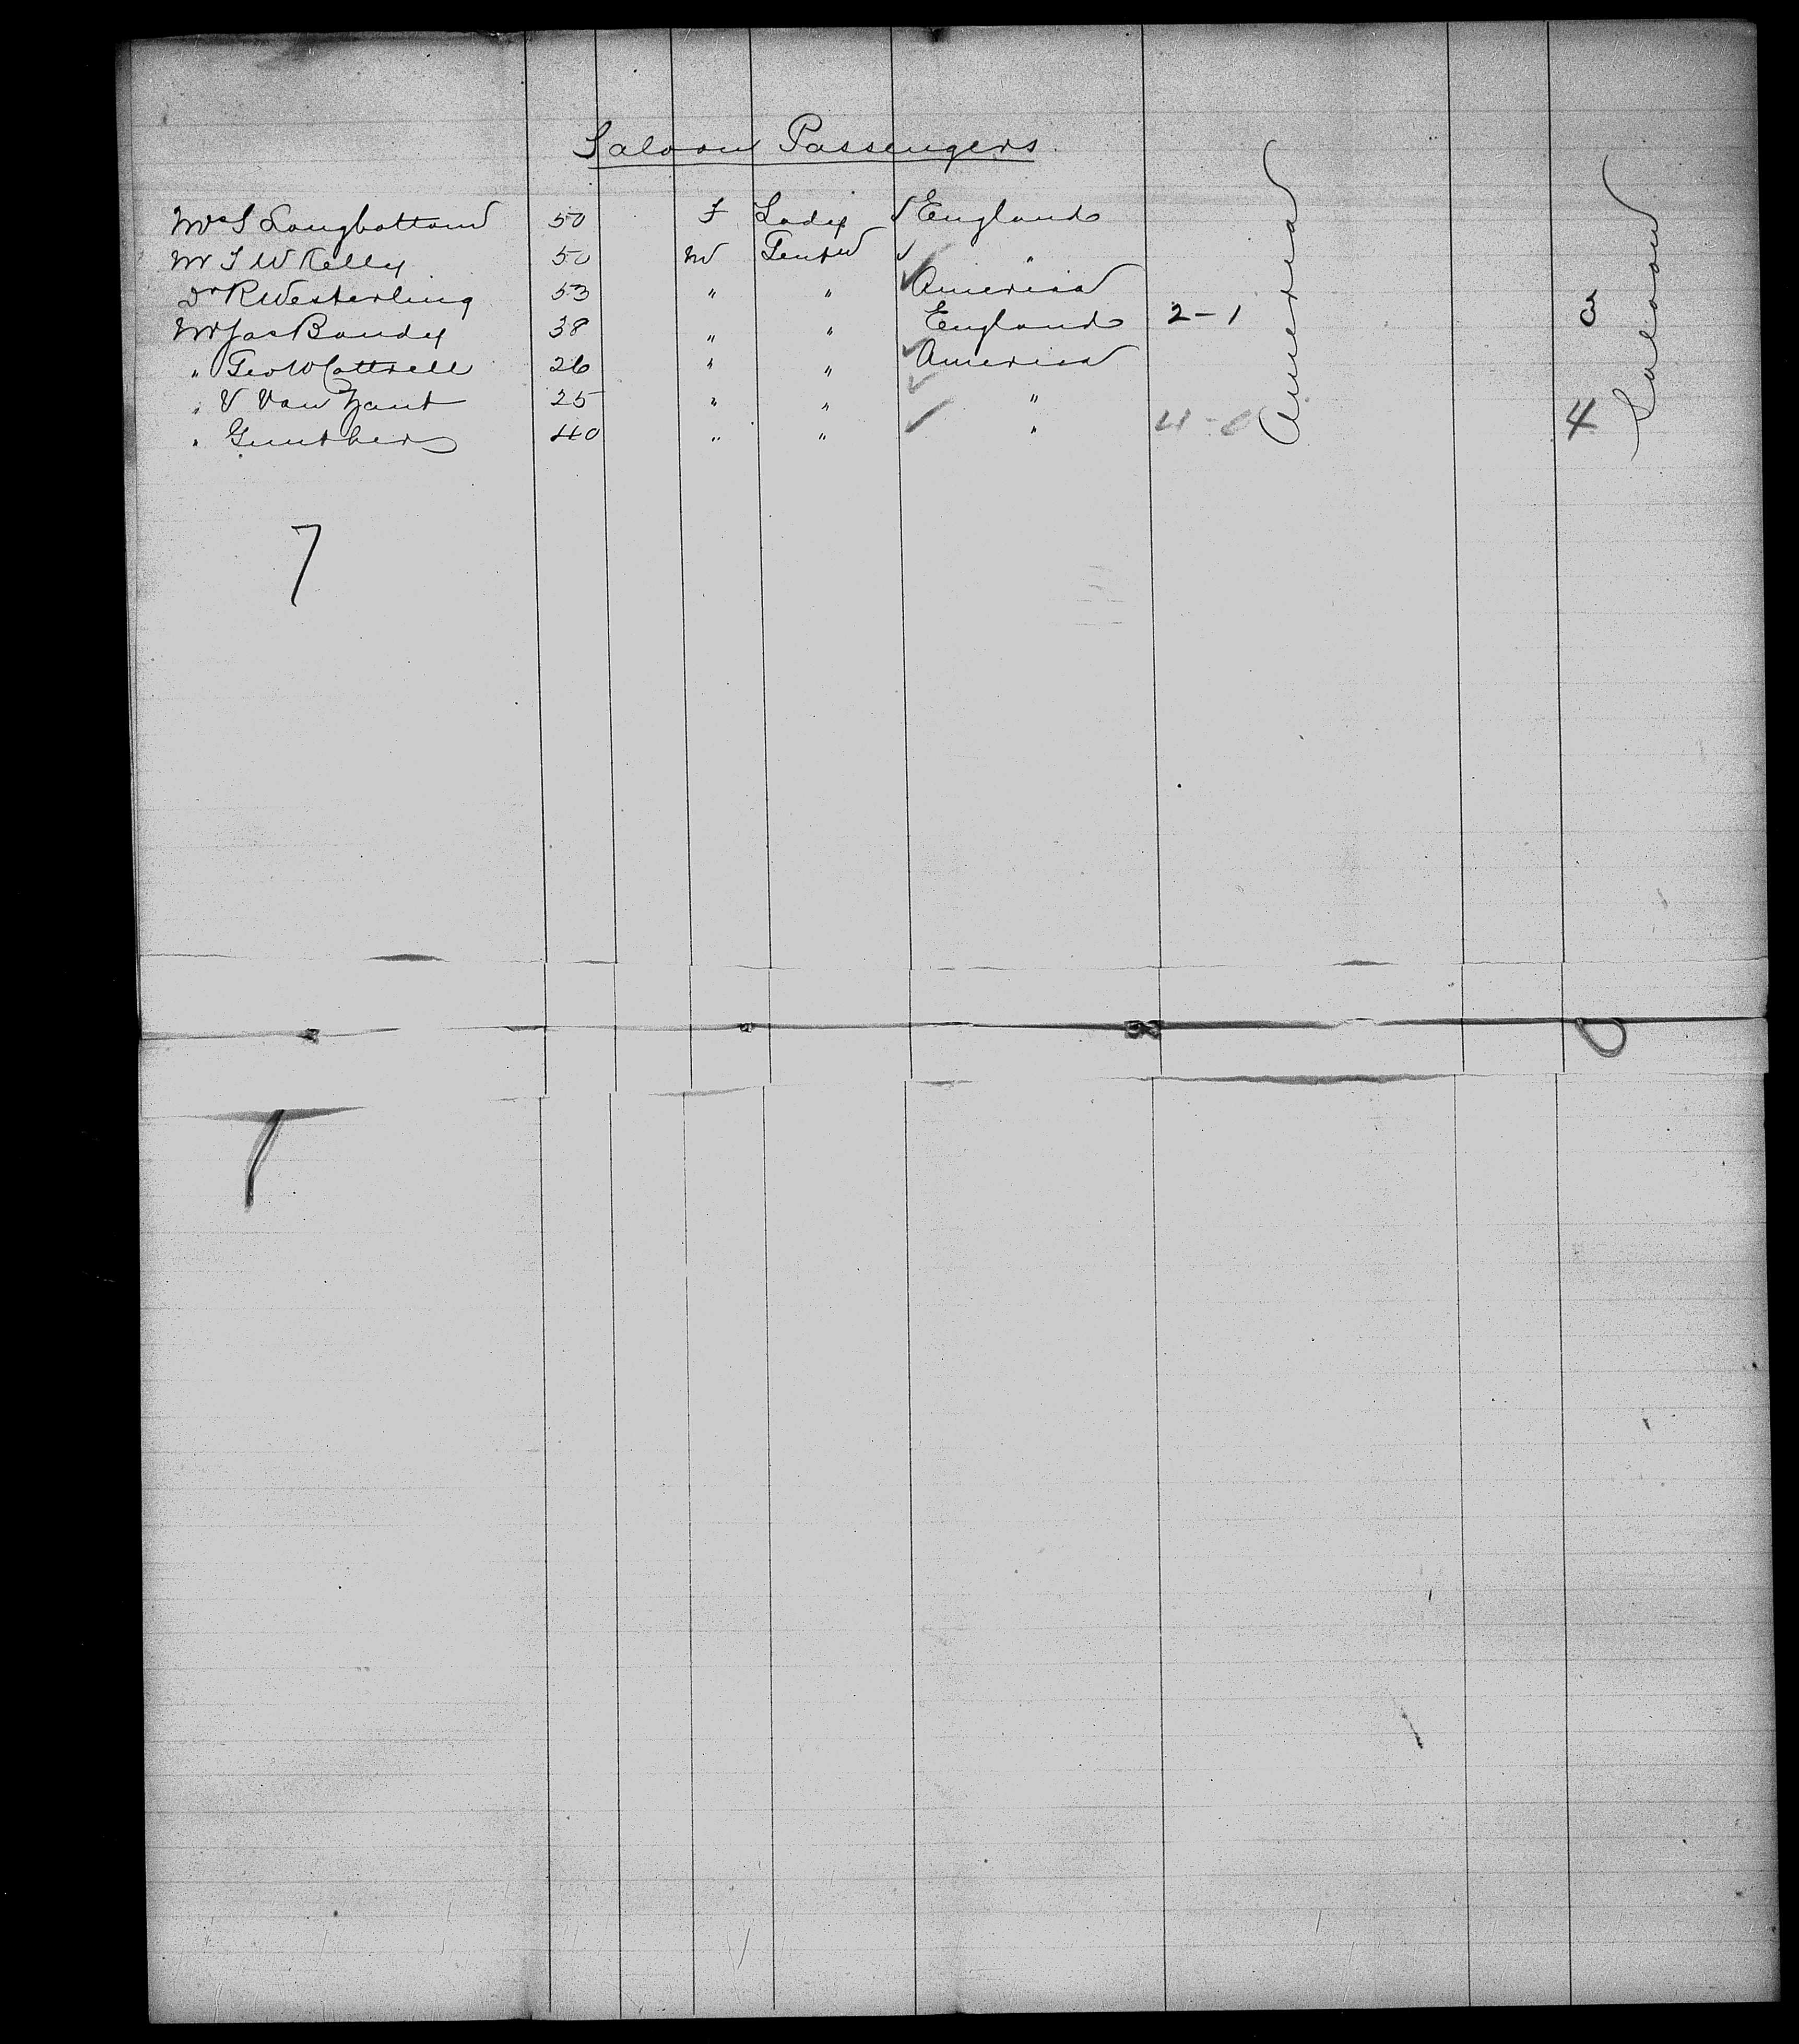 Saloon Passengers
Mrs S Longbottom 50 F Lady √ England
Mr T W Kelly 50 M Gentn √ "
Dr R Westerling 53 " " ✓ America
Mr Jas Bandy 38 " " England 2-1 3
" Geo W Cottrell 26 " " ✓ America
" V Van Zant 25 " " ✓ "
" Gunther 40 " " ✓ " 4-0 4
America
Saloon
7